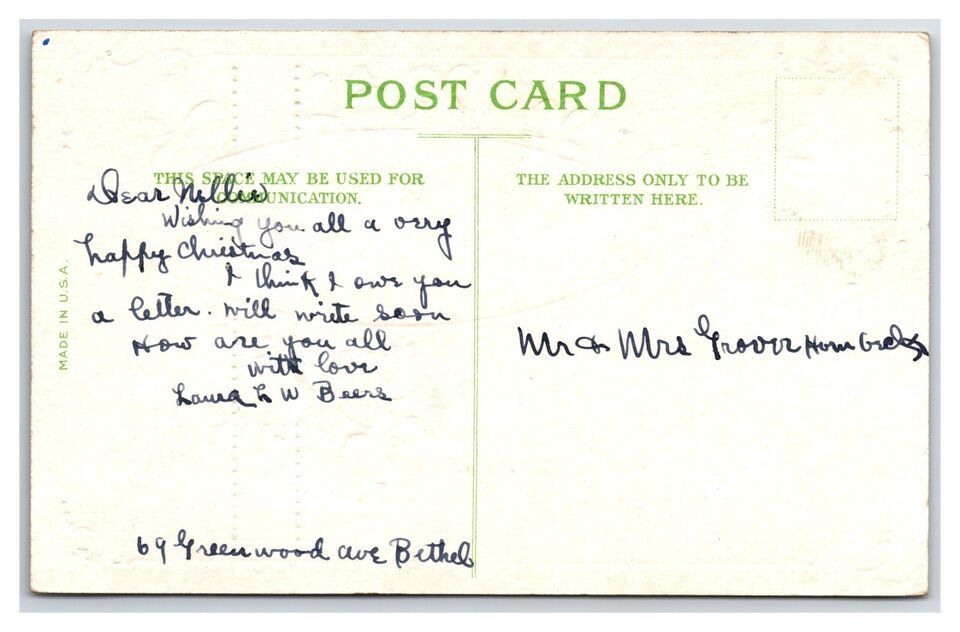 POST CARD
THIS SPACE MAY BE USED FOR
COMMUNICATION.
Dear Nellie
Wishing you all a very
happy Christmas
I think I owe you
a letter. Will write soon
How are you all
with love
Laura L W Beers
69 Greenwood ave Bethel
MADE IN U.S.A.
THE ADDRESS ONLY TO BE
WRITTEN HERE.
Mr & Mrs Grover Hornbeck